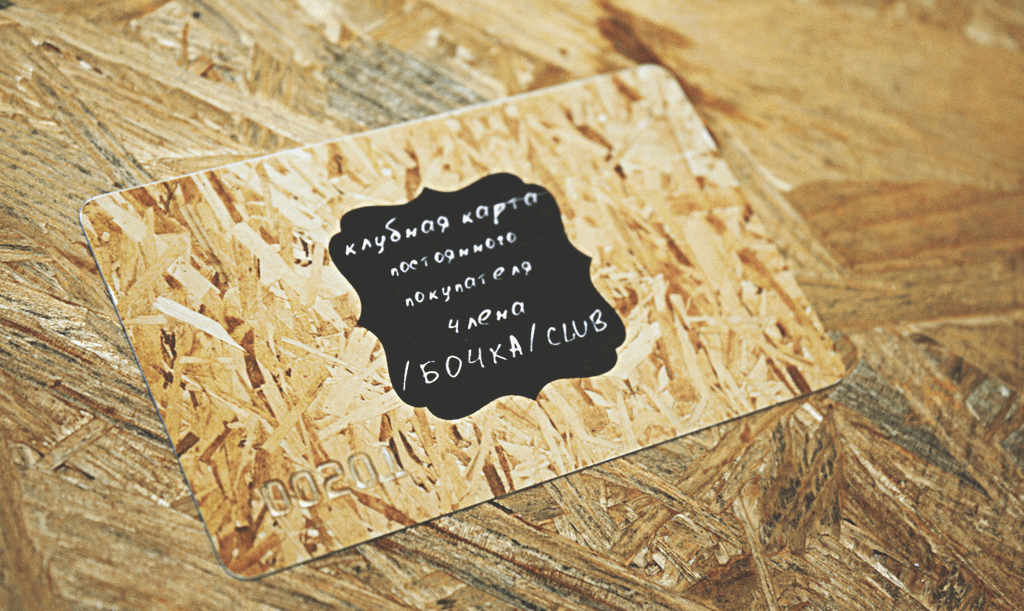 клубная карта
постоянного
покупателя
члена
/БОЧКА/CLUB
00201